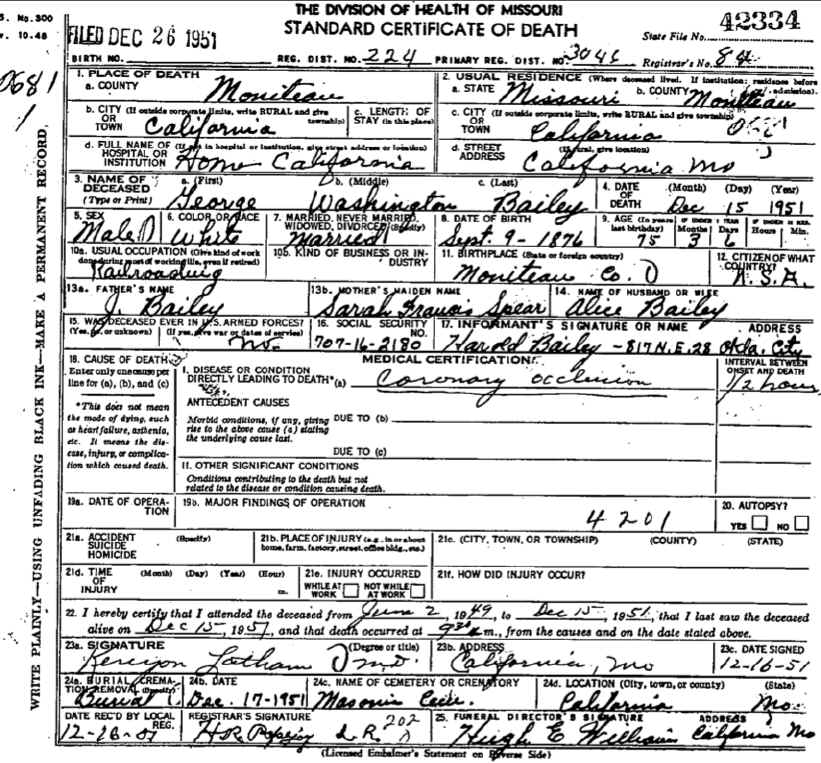 THE DIVISION OF HEALTH OF MISSOURI
S. No. 300
v. 10-48
FILED DEC 26 1951
STANDARD CERTIFICATE OF DEATH
State File No. 42334
BIRTH NO.
REG. DIST. NO. 224
PRIMARY REG. DIST. NO. 3046
Registrar's No. 84
0681
1
WRITE PLAINLY—USING UNFADING BLACK INK—MAKE A PERMANENT RECORD.
1. PLACE OF DEATH
a. COUNTY Moniteau
2. USUAL RESIDENCE (Where deceased lived. If institution: residence before admission).
a. STATE Missouri b. COUNTY Moniteau
b. CITY (If outside corporate limits, write RURAL and give township)
OR TOWN California
c. LENGTH OF STAY (in this place)
c. CITY (If outside corporate limits, write RURAL and give township)
OR TOWN California
d. FULL NAME OF (If not in hospital or institution, give street address or location)
HOSPITAL OR INSTITUTION Home California
d. STREET ADDRESS (If rural, give location)
California Mo
3. NAME OF DECEASED (Type or Print)
a. (First) George
b. (Middle) Washington
c. (Last) Bailey
4. DATE OF DEATH (Month) (Day) (Year)
Dec 15 1951
5. SEX Male
6. COLOR OR RACE White
7. MARRIED, NEVER MARRIED, WIDOWED, DIVORCED (Specify)
Married
8. DATE OF BIRTH
Sept. 9 - 1876
9. AGE (In years last birthday) 75
IF UNDER 1 YEAR Months 3 Days 6
IF UNDER 24 HRS. Hours Min.
10a. USUAL OCCUPATION (Give kind of work done during most of working life, even if retired)
Railroading
10b. KIND OF BUSINESS OR INDUSTRY
11. BIRTHPLACE (State or foreign country)
Moniteau Co.
12. CITIZEN OF WHAT COUNTRY?
U.S.A.
13a. FATHER'S NAME
J. Bailey
13b. MOTHER'S MAIDEN NAME
Sarah Francis Spear
14. NAME OF HUSBAND OR WIFE
Alice Bailey
15. WAS DECEASED EVER IN U.S. ARMED FORCES?
(Yes, no, or unknown) (If yes, give war or dates of service)
no.
16. SOCIAL SECURITY NO.
707-16-2180
17. INFORMANT'S SIGNATURE OR NAME ADDRESS
Harold Bailey - 817 N.E. 28 Okla. City
18. CAUSE OF DEATH
Enter only one cause per line for (a), (b), and (c)
*This does not mean the mode of dying, such as heart failure, asthenia, etc. It means the disease, injury, or complication which caused death.
MEDICAL CERTIFICATION
I. DISEASE OR CONDITION DIRECTLY LEADING TO DEATH* (a) Coronary occlusion
INTERVAL BETWEEN ONSET AND DEATH
1/2 hour
ANTECEDENT CAUSES
Morbid conditions, if any, giving rise to the above cause (a) stating the underlying cause last.
DUE TO (b)
DUE TO (c)
II. OTHER SIGNIFICANT CONDITIONS
Conditions contributing to the death but not related to the disease or condition causing death.
19a. DATE OF OPERATION
19b. MAJOR FINDINGS OF OPERATION
4201
20. AUTOPSY?
YES NO
21a. ACCIDENT SUICIDE HOMICIDE (Specify)
21b. PLACE OF INJURY (e.g., in or about home, farm, factory, street, office bldg., etc.)
21c. (CITY, TOWN, OR TOWNSHIP) (COUNTY) (STATE)
21d. TIME OF INJURY (Month) (Day) (Year) (Hour) m.
21e. INJURY OCCURRED
WHILE AT WORK NOT WHILE AT WORK
21f. HOW DID INJURY OCCUR?
22. I hereby certify that I attended the deceased from June 2, 1949, to Dec 15, 1951, that I last saw the deceased
alive on Dec 15, 1951, and that death occurred at m., from the causes and on the date stated above.
23a. SIGNATURE (Degree or title)
Latham M.D.
23b. ADDRESS
California, Mo
23c. DATE SIGNED
12-16-51
24a. BURIAL, CREMATION, REMOVAL (Specify)
Burial
24b. DATE
Dec. 17-1951
24c. NAME OF CEMETERY OR CREMATORY
Masonic Cem.
24d. LOCATION (City, town, or county) (State)
California Mo.
DATE REC'D BY LOCAL REG.
12-16-51
REGISTRAR'S SIGNATURE
L.R. 202
25. FUNERAL DIRECTOR'S SIGNATURE ADDRESS
Hugh E Williams California Mo
(Licensed Embalmer's Statement on Reverse Side)